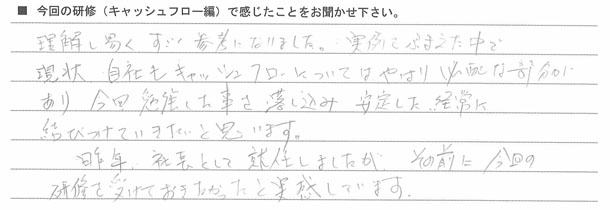 ■ 今回の研修（キャッシュフロー編）で感じたことをお聞かせ下さい。
理解し易く すごく参考になりました。実例をふまえた中で
現状、自社もキャッシュフローについてはやはり心配な部分が
あり 今回勉強した事を落し込み 安定した経営に
結びつけていきたいと思います。
昨年、社長として就任しましたが、その前に今回の
研修を受けておきたかったと実感しています。